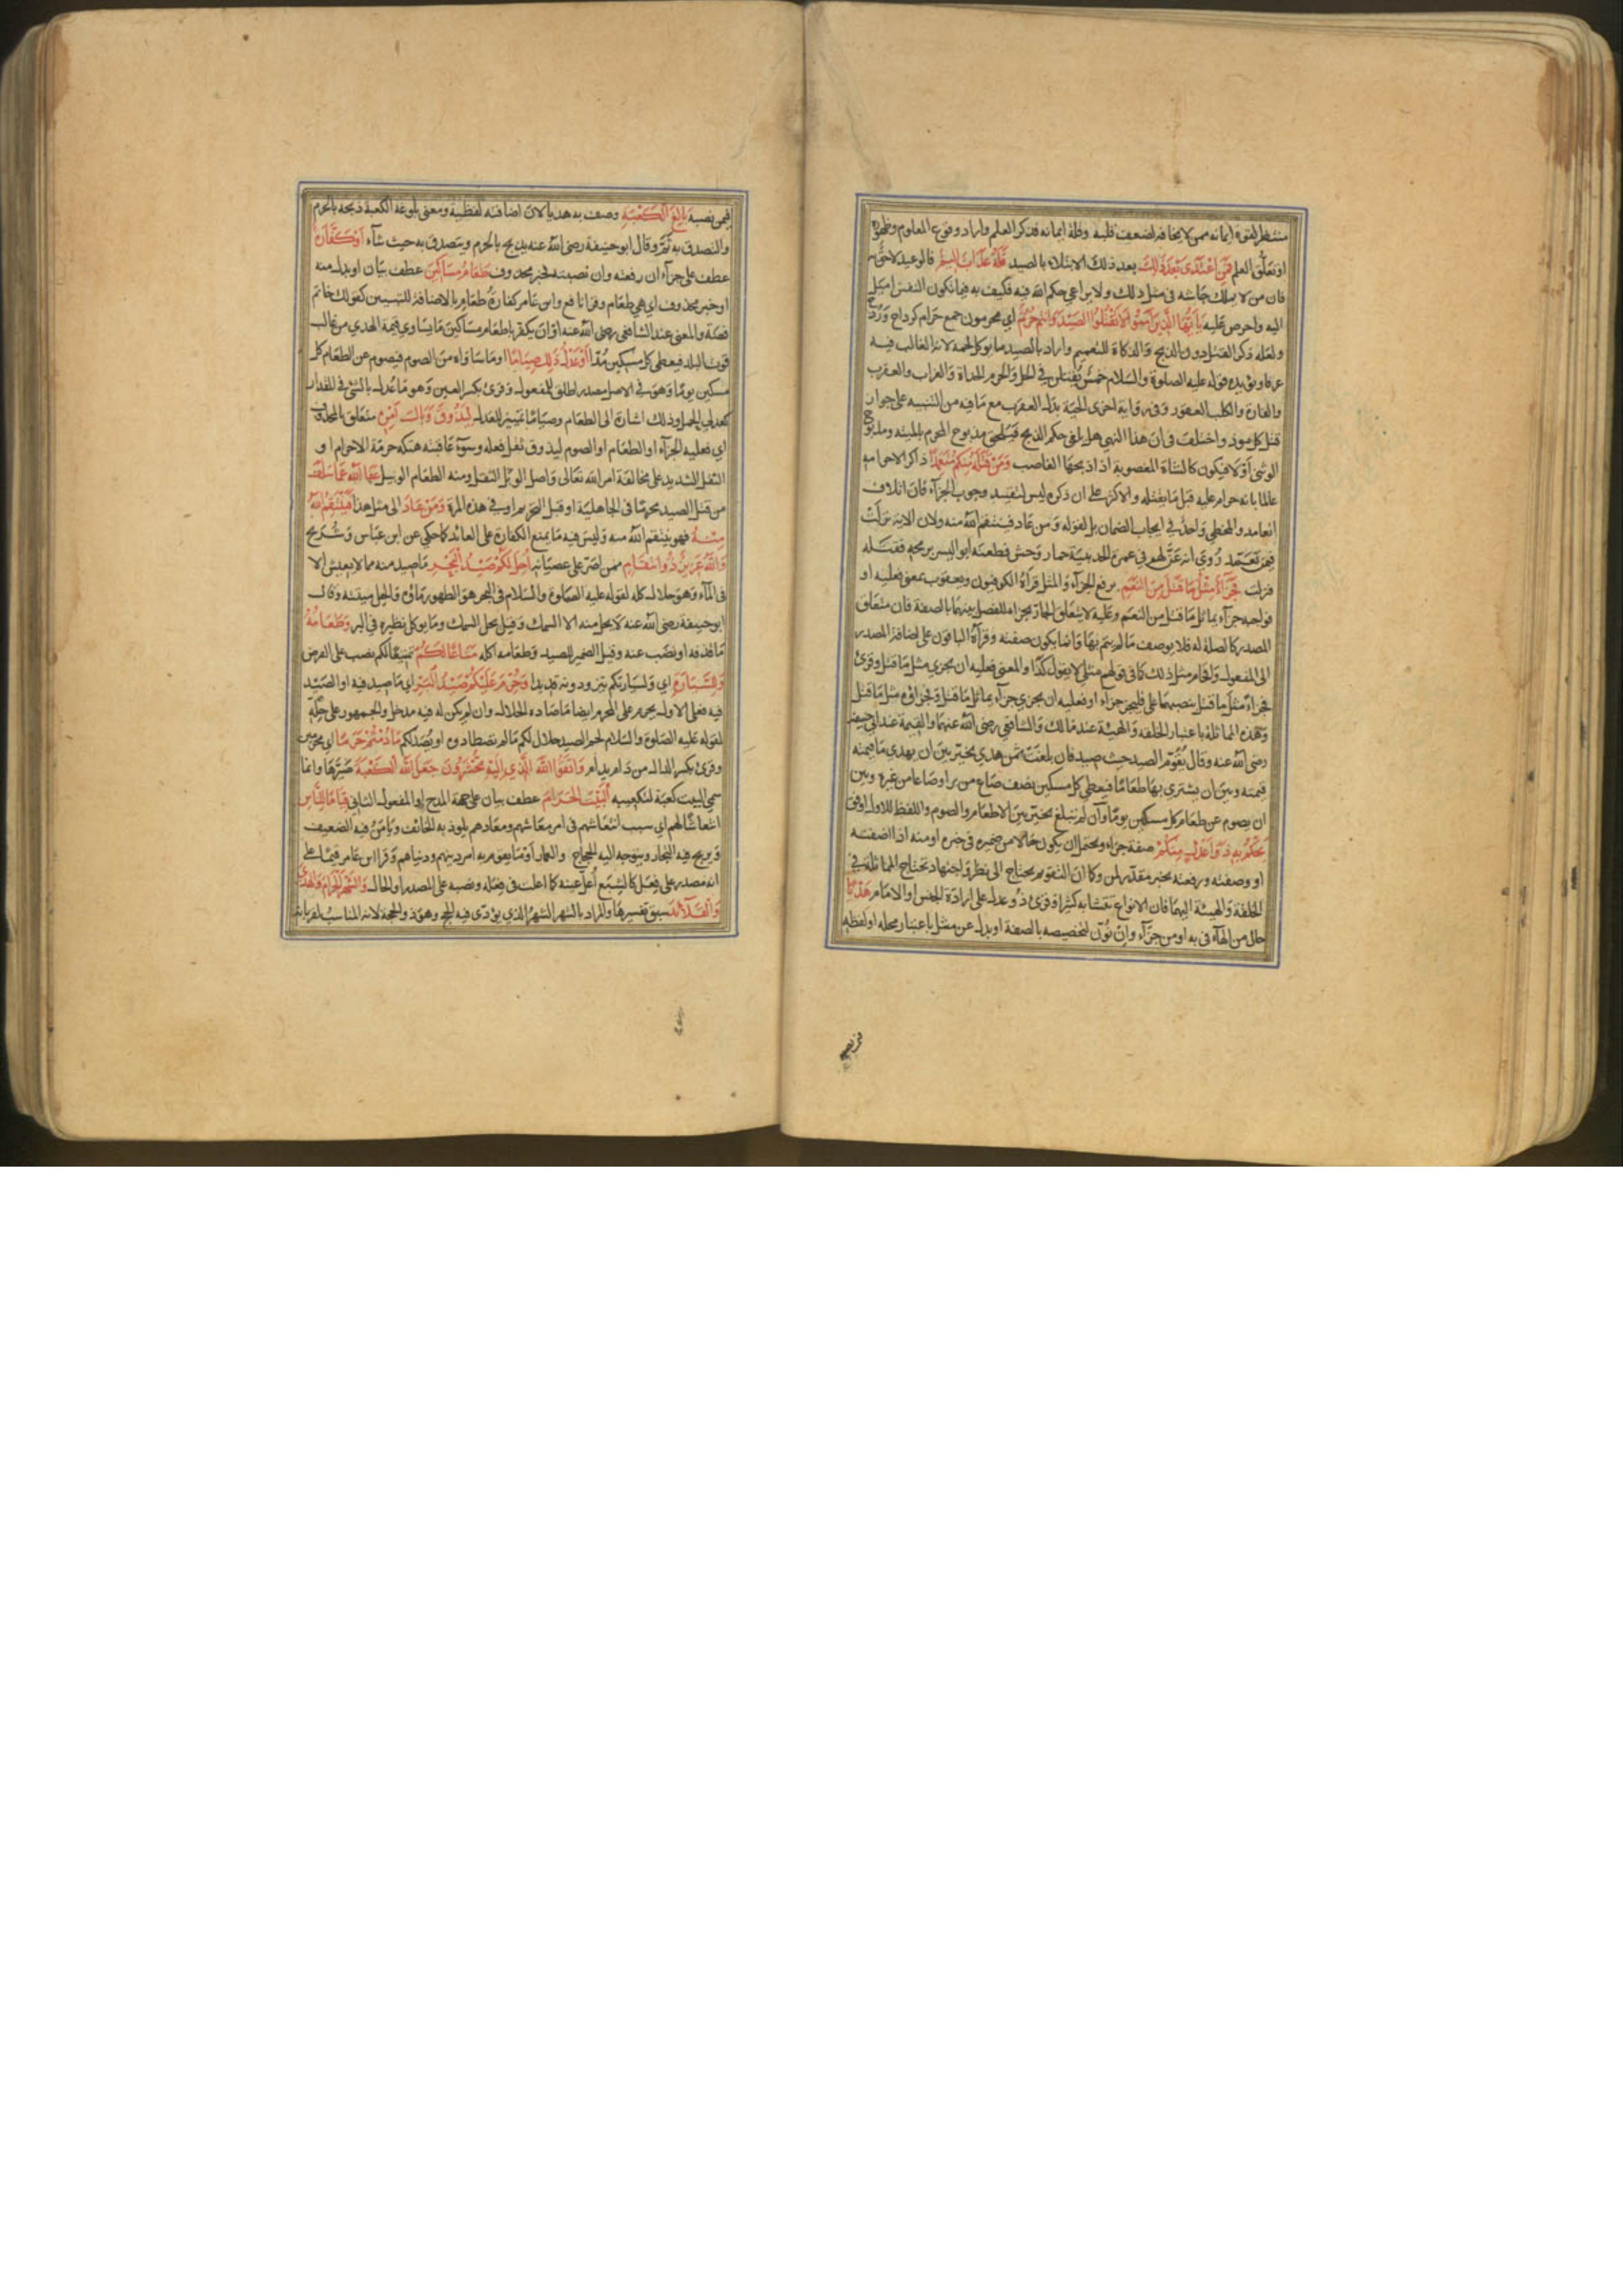 منتظر لقوة ايمانه ممن لا يخافه لضعف قلبه وقلة ايمانه فذكر العلم واراد وقوع المعلوم وظهوره
او تعلق العلم فمن اعتدى بعد ذلك بعد ذلك الابتلاء بالصيد فله عذاب اليم فالوعيد لاحق به
فان من لا يملك جاشه في مثل ذلك ولا يراعي حكم الله فيه فكيف به فيما تكون النفس اميل
اليه واحرص عليه يا ايها الذين آمنوا لا تقتلوا الصيد وانتم حرم اي محرمون جمع حرام كرداح وردح
ولعله ذكر القتل دون الذبح والذكاة للتعميم واراد بالصيد ما يوكل لحمه لانه الغالب فيه
عرفا ويؤيده قوله عليه الصلوة والسلام خمس يقتلن في الحل والحرم الحداة والغراب والعقرب
والفارة والكلب العقور وفي رواية اخرى الحية بدل العقرب مع ما فيه من التنبيه على جواز
قتل كل موذ واختلف في ان هذا النهي هل يلغي حكم الذبح فيلحق مذبوح المحرم بالميتة ومذبوح
الوثني او لا فيكون كالشاة المغصوبة اذا ذبحها الغاصب ومن قتله منكم متعمدا ذاكرا لاحرامه
عالما بانه حرام عليه قبل ما يقتله والاكثر على ان ذكره ليس لتقييد وجوب الجزآء فان اتلاف
العامد والمخطي واحد في ايجاب الضمان بل لقوله ومن عاد فينتقم الله منه ولان الاية نزلت
فيمن تعمد روي انه عن لهم في عمرة الحديبية حمار وحش فطعنه ابو اليسر برمحه فقتله
فنزلت فجزآء مثل ما قتل من النعم برفع الجزآء والمثل قراءة الكوفيون ويعقوب بمعنى فعليه او
فواجبه جزآء يماثل ما قتل من النعم وعليه لا يتعلق الجار بجزاء للفصل بينهما بالصفة فان متعلق
المصدر كالصلة له فلا يوصف ما لم يتم بها وانما يكون صفته وقرأه الباقون على اضافة المصدر
الى المفعول واقحام مثل ذلك كما في قولهم مثلي لا يقول كذا والمعنى فعليه ان يجزي مثل ما قتل وقرئ
فجزاء مثل ما قتل بنصبهما على فليجز جزاء او فعليه ان يجزي جزآء يماثل ما قتل وفجزاؤه مثل ما قتل
وهذه المماثلة باعتبار الخلقة والهيئة عند مالك والشافعي رضي الله عنهما والقيمة عند ابي حنيفة
رضي الله عنه وقال يقوم الصيد حيث صيد فان بلغت ثمن هدي يخير بين ان يهدي ما قيمته
قيمته وبين ان يشتري بها طعاما فيعطي كل مسكين نصف صاع من بر او صاعا من غيره وبين
ان يصوم عن طعام كل مسكين يوما وان لم تبلغ يخير بين الاطعام والصوم واللفظ للاول اوفق
يحكم به ذوا عدل منكم صفة جزاء ويحتمل ان يكون حالا من ضميره في خبره او منه اذا اضفته
او وصفته ورفعته بخبر مقدر لمن وكما ان التقويم يحتاج الى نظر واجتهاد تحتاج المماثلة في
الخلقة والهيئة اليهما فان الانواع تتشابه كثيرا وقرئ ذو عدل على ارادة الجنس او الامام هديا
حال من الهآء في به او من جزآء وان نون لتخصيصه بالصفة او بدل عن مثل باعتبار محله او لفظه
فمن نصبه
فيمن نصبه بالغ الكعبة وصف به هديا لان اضافته لفظية ومعنى بلوغه الكعبة ذبحه بالحرم
والتصدق به ثم وقال ابو حنيفة رضي الله عنه يذبح بالحرم ويتصدق به حيث شآء او كفارة
عطف على جزآء ان رفعته وان نصبته فخبر محذوف طعام مساكين عطف بيان او بدل منه
او خبر محذوف اي هي طعام وقرأ نافع وابن عامر كفارة طعام بالاضافة للتبيين كقولك خاتم
فضة والمعنى عند الشافعي رضي الله عنه او ان يكفر باطعام مساكين ما يساوي قيمة الهدي من غالب
قوت البلد فيعطي كل مسكين مدا او عدل ذلك صياما او ما ساواه من الصوم فيصوم عن الطعام كل
مسكين يوما وهو في الاصل مصدر اطلق للمفعول وقرئ بكسر العين وهو ما عدل بالشئ في المقدار
كعدلي الحمل وذلك اشارة الى الطعام وصياما تمييز للعدل ليذوق وبال امره متعلق بالمحذوف
اي فعليه الجزآء او الطعام او الصوم ليذوق ثقل فعله وسوء عاقبته هتكه حرمة الاحرام او
الثقل الشديد على مخالفة امر الله تعالى واصل الوبل الثقل ومنه الطعام الوبيل عفا الله عما سلف
من قتل الصيد محرما في الجاهلية او قبل التحريم او في هذه المرة ومن عاد الى مثل هذا فينتقم الله
منه فهو ينتقم الله منه وليس فيه ما يمنع الكفارة على العائد كما حكي عن ابن عباس وشريح
والله عزيز ذو انتقام ممن اصر على عصيانه احل لكم صيد البحر ما صيد منه مما لا يعيش الا
في المآء وهو حلال كله لقوله عليه الصلوة والسلام في البحر هو الطهور ماؤه والحل ميتته وقال
ابو حنيفة رضي الله عنه لا يحل منه الا السمك وقيل يحل السمك وما يوكل نظيره في البر وطعامه
ما قذفه او نضب عنه وقيل الضمير للصيد وطعامه اكله متاعا لكم تمتيعا لكم نصب على الغرض
وللسيارة اي ولسيارتكم يتزودونه قديدا وحرم عليكم صيد البر اي ما صيد فيه او الصيد
فيه فعلى الاول يحرم على المحرم ايضا ما صاده الحلال وان لم يكن له فيه مدخل والجمهور على حله
لقوله عليه الصلوة والسلام لحم الصيد حلال لكم ما لم تصطادوه او يصد لكم ما دمتم حرما اي محرمين
وقرئ بكسر الدال من دام يدام واتقوا الله الذي اليه تحشرون جعل الله الكعبة صيرها وانما
سمي البيت كعبة لتكعبه البيت الحرام عطف بيان على جهة المدح او المفعول الثاني قياما للناس
انتعاشا لهم اي سبب انتعاشهم في امر معاشهم ومعادهم يلوذ به الخائف ويامن فيه الضعيف
ويربح فيه التجار ويتوجه اليه الحجاج والعمار او ما يقوم به امر دينهم ودنياهم وقرأ ابن عامر قيما على
انه مصدر على فعل كالشبع اعل عينه كما اعلت في فعله ونصبه على المصدر او الحال والشهر الحرام والهدي
والقلآئد سبق تفسيرها والمراد بالشهر الشهر الذي يؤدى فيه الحج وهو ذو الحجة لانه المناسب لقرنائه